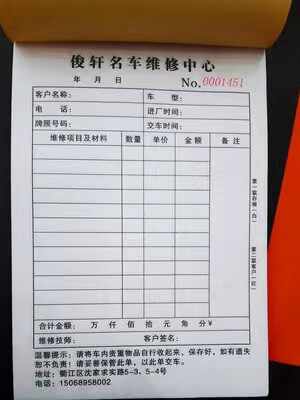 俊轩名车维修中心
年 月 日 No.0001451
客户名称: 车 型:
电 话: 进厂时间:
牌照号码: 交车时间:
维修项目及材料 数量 单价 金额 备注
第一联存根(白)
第二联客户(红)
合计金额: 万 仟 佰 拾 元 角 分¥
维修技师: 客户签名:
温馨提示: 请将车内贵重物品自行收起来, 保存好, 如有遗失
恕不负责! 请妥善保管此单, 以此单交车。
地址: 衢江区沈家求实路5-3、5-4号
电话: 15068958002